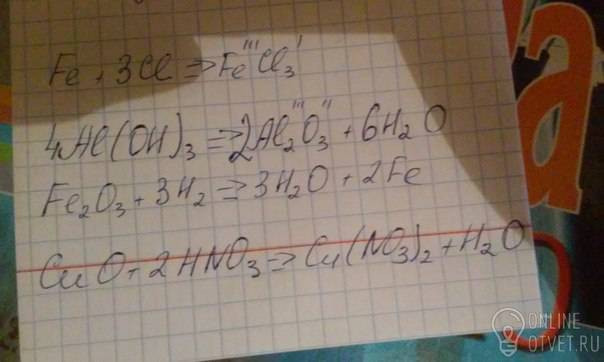 Fe + 3Cl => Fe^III Cl₃^I
4Al(OH)₃ => 2Al₂^III O₃^II + 6H₂O
Fe₂O₃ + 3H₂ => 3H₂O + 2Fe
CuO + 2HNO₃ => Cu(NO₃)₂ + H₂O
ONLINE
OTVET.RU